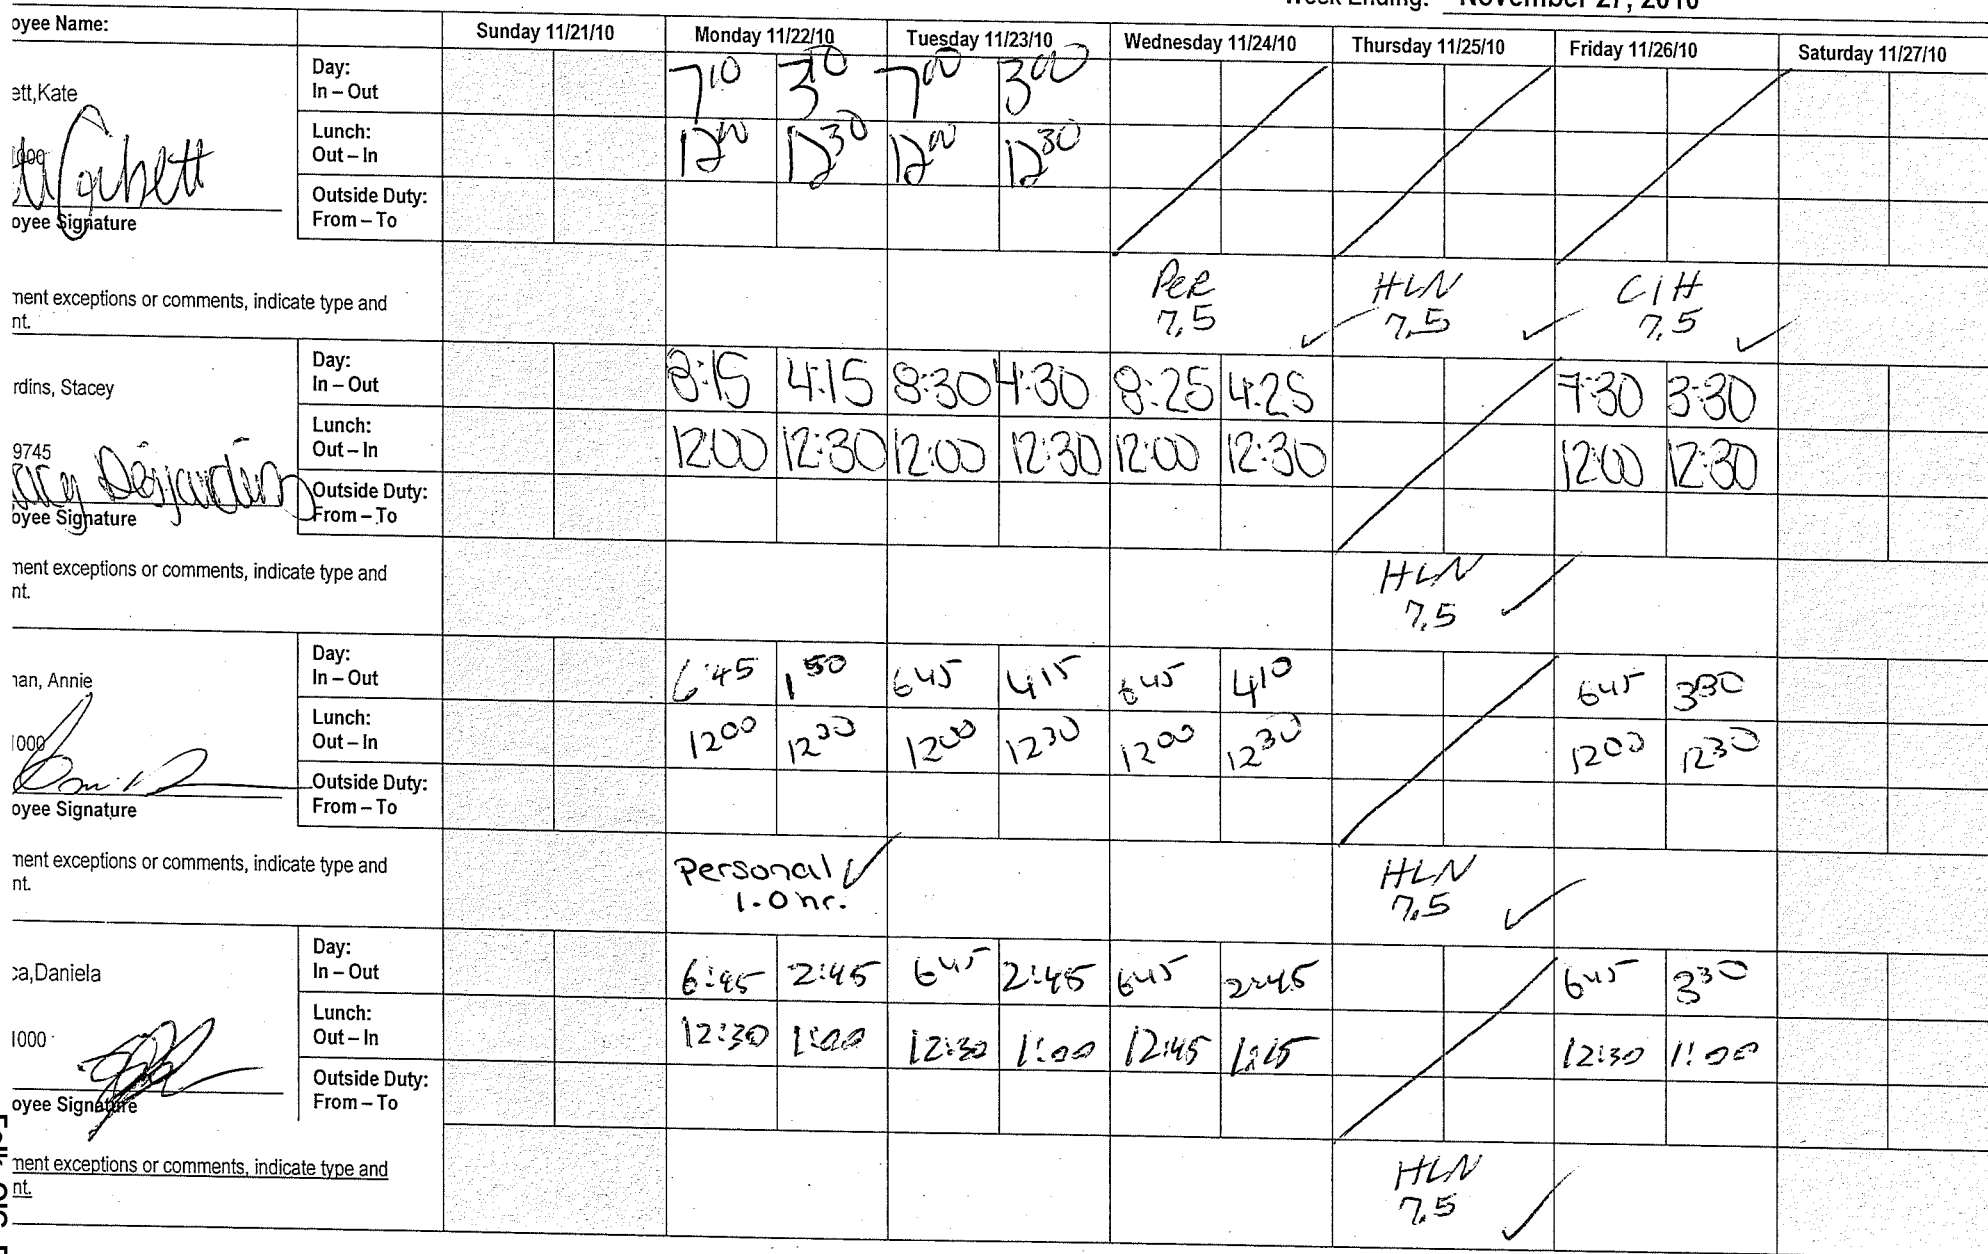 Week Ending: November 27, 2010
oyee Name: Sunday 11/21/10 Monday 11/22/10 Tuesday 11/23/10 Wednesday 11/24/10 Thursday 11/25/10 Friday 11/26/10 Saturday 11/27/10
ett,Kate
Day:
In – Out 7 10 3 10 7 00 3 00
1000
Lunch:
Out – In 12 00 12 30 12 00 12 30
oyee Signature
Outside Duty:
From – To
PER HLN CIH
ment exceptions or comments, indicate type and
nt. 7.5 7.5 7.5
rdins, Stacey
Day:
In – Out 8:15 4:15 8:30 4:30 8:25 4:25 7:30 3:30
9745
Lunch:
Out – In 1200 12:30 12:00 12:30 12:00 12:30 12:00 12:30
acy Desjardins
oyee Signature
Outside Duty:
From – To
HLN
ment exceptions or comments, indicate type and
nt. 7.5
nan, Annie
Day:
In – Out 6:45 1 50 645 415 645 410 645 330
1000
Lunch:
Out – In 1200 1230 1200 1230 1200 1230 1200 1230
oyee Signature
Outside Duty:
From – To
Personal HLN
ment exceptions or comments, indicate type and
nt. 1.0 hr. 7.5
ca,Daniela
Day:
In – Out 6:45 2:45 645 2:45 645 2:45 645 330
1000
Lunch:
Out – In 12:30 1:00 12:30 1:00 12:45 1:15 12:30 1:00
oyee Signature
Outside Duty:
From – To
HLN
ment exceptions or comments, indicate type and
nt. 7.5